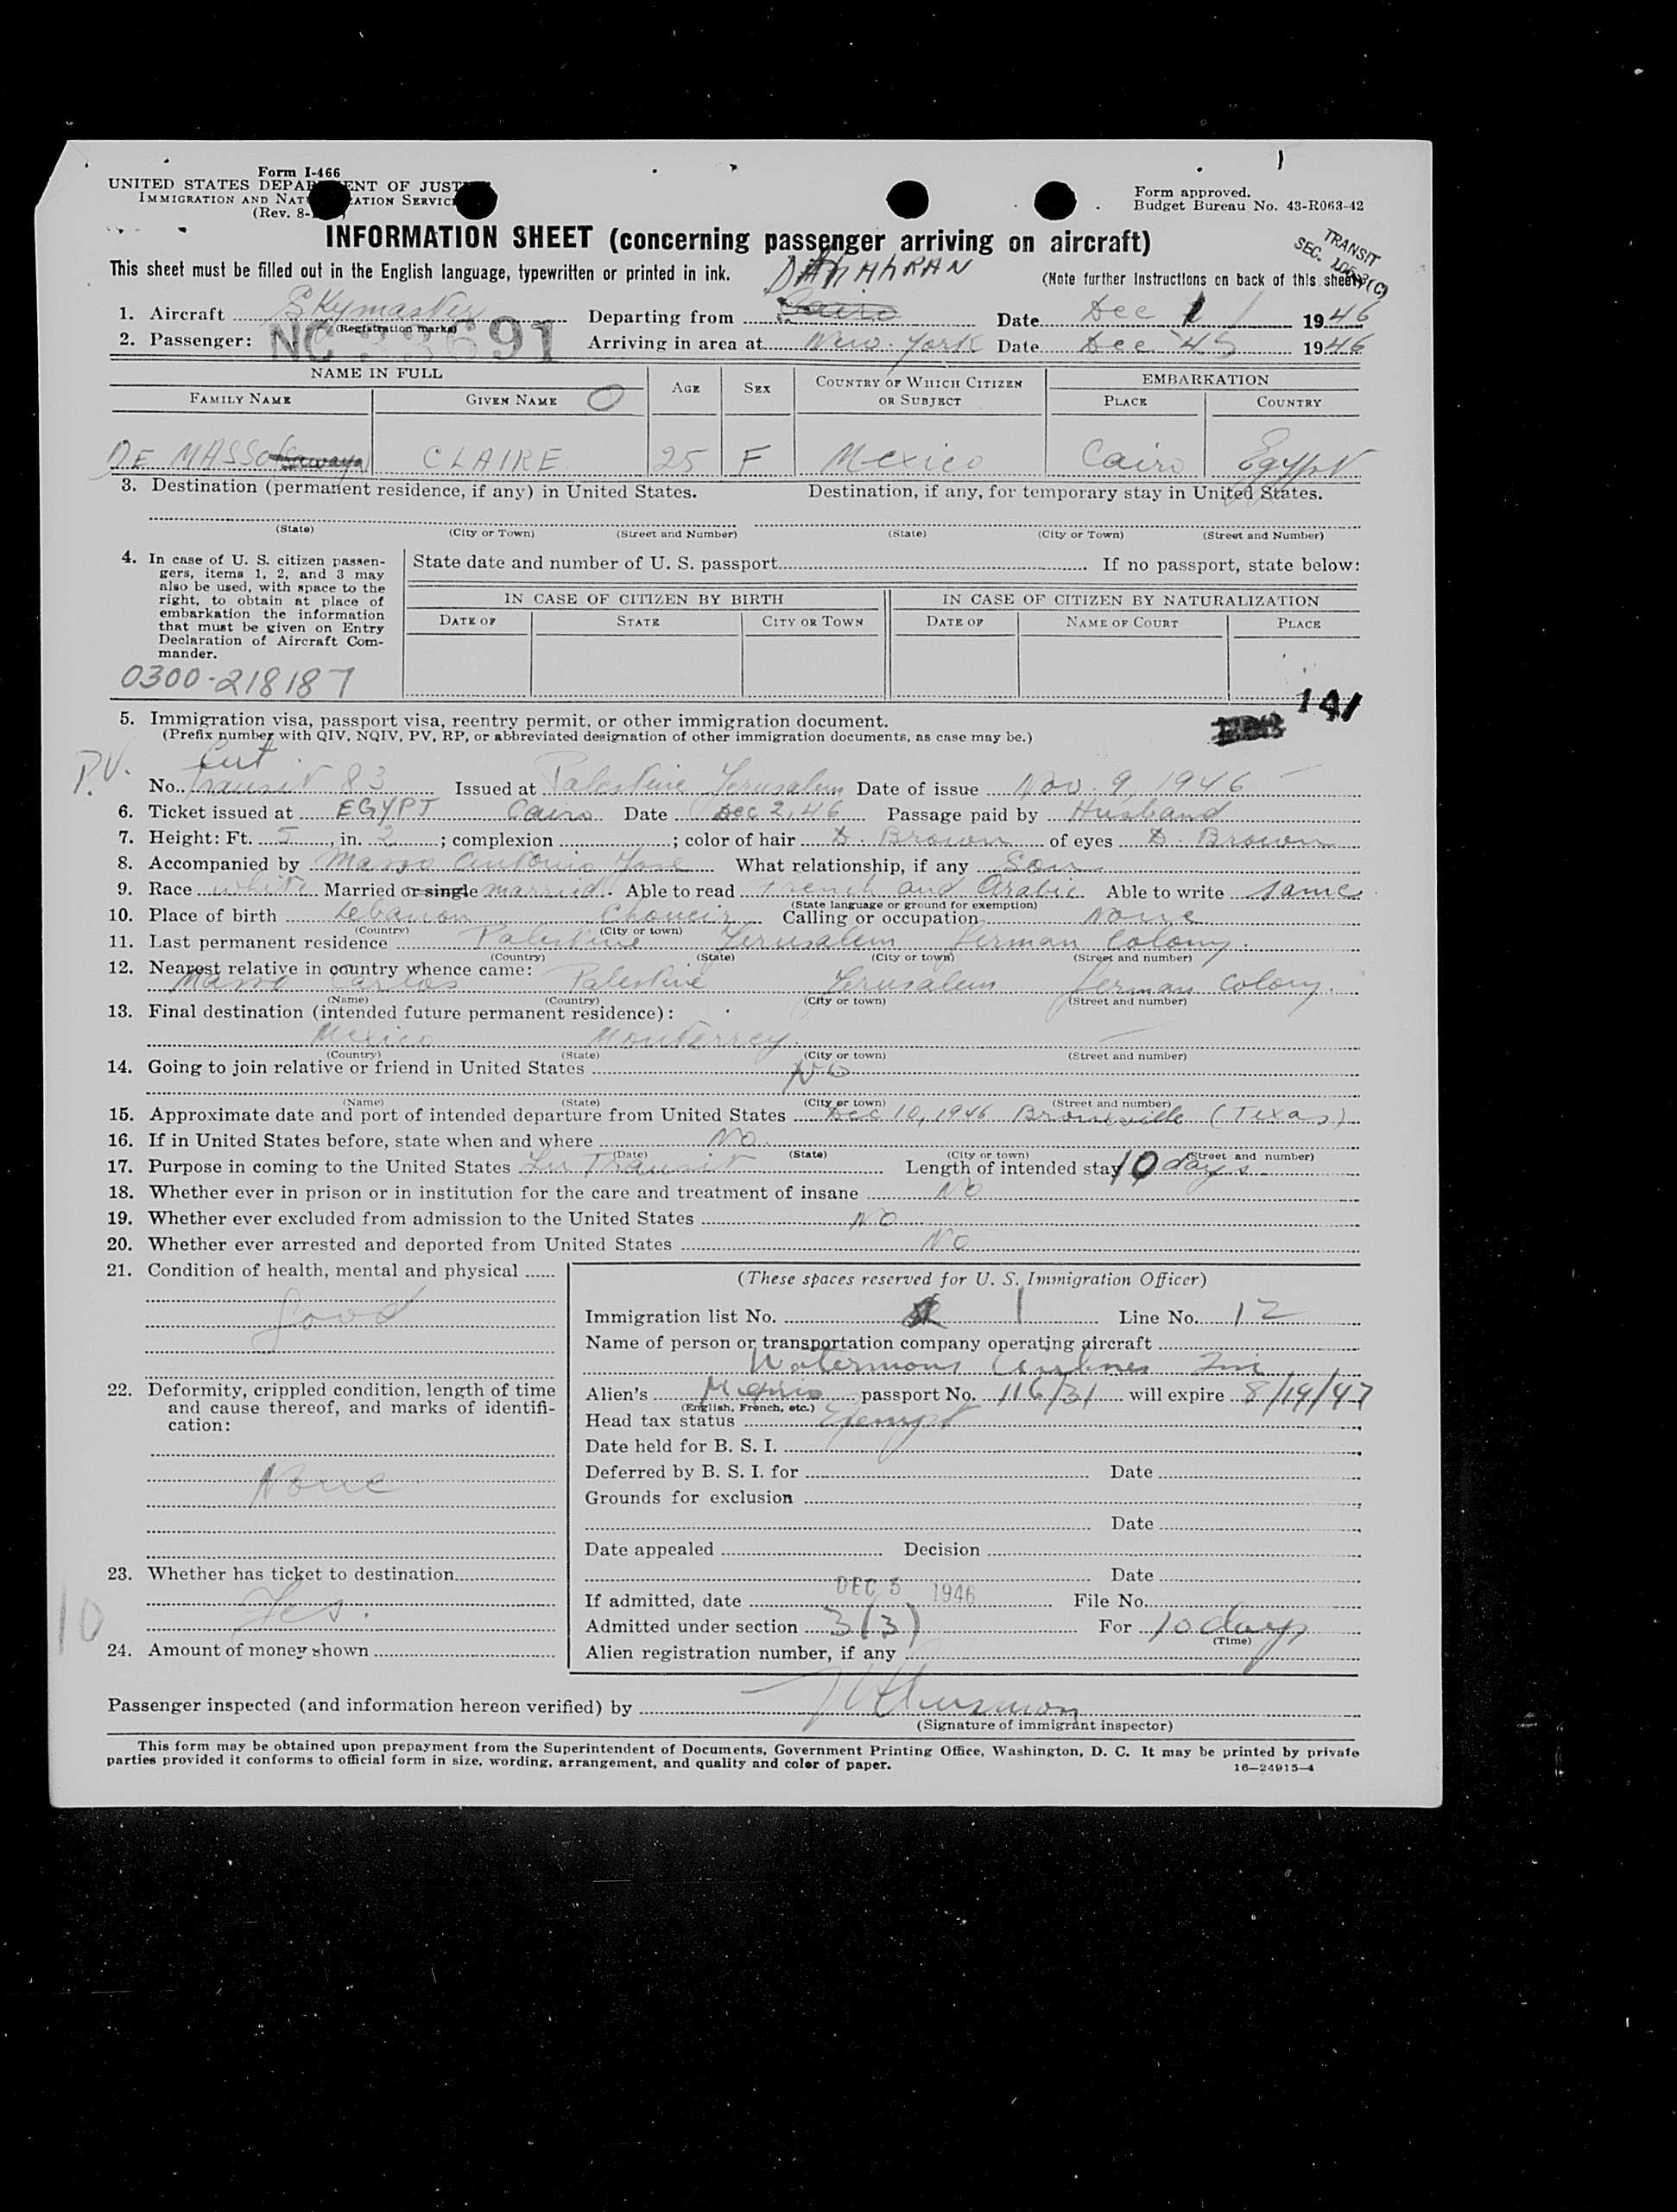 Form I-466
UNITED STATES DEPARTMENT OF JUSTICE
IMMIGRATION AND NATURALIZATION SERVICE
(Rev. 8-
Form approved.
Budget Bureau No. 43-R063-42
INFORMATION SHEET (concerning passenger arriving on aircraft)
TRANSIT
SEC.
This sheet must be filled out in the English language, typewritten or printed in ink.
DAHAHRAN
(Note further instructions on back of this sheet)
1. Aircraft Skymaster Departing from Cairo Date Dec 1 1946
(Registration marks)
NC 33691
2. Passenger: Arriving in area at New-York Date Dec 45 1946
NAME IN FULL AGE SEX COUNTRY OF WHICH CITIZEN OR SUBJECT EMBARKATION
FAMILY NAME GIVEN NAME O PLACE COUNTRY
DE MASSO Sawaya CLAIRE 25 F Mexico Cairo Egypt
3. Destination (permanent residence, if any) in United States. Destination, if any, for temporary stay in United States.
(State) (City or Town) (Street and Number) (State) (City or Town) (Street and Number)
4. In case of U. S. citizen passengers, items 1, 2, and 3 may also be used, with space to the right, to obtain at place of embarkation the information that must be given on Entry Declaration of Aircraft Commander.
State date and number of U. S. passport If no passport, state below:
IN CASE OF CITIZEN BY BIRTH IN CASE OF CITIZEN BY NATURALIZATION
DATE OF STATE CITY OR TOWN DATE OF NAME OF COURT PLACE
0300-218187
141
5. Immigration visa, passport visa, reentry permit, or other immigration document.
(Prefix number with QIV, NQIV, PV, RP, or abbreviated designation of other immigration documents, as case may be.)
P.V. Cert
No. Transit 83 Issued at Palestine Jerusalem Date of issue Nov. 9, 1946
6. Ticket issued at EGYPT Cairo Date Dec 2, 46 Passage paid by Husband
7. Height: Ft. 5, in. 2; complexion ; color of hair D. Brown of eyes D. Brown
8. Accompanied by Masso Antonio Jose What relationship, if any Son
9. Race white Married or single married. Able to read French and Arabic Able to write same
(State language or ground for exemption)
10. Place of birth Lebanon Choueir Calling or occupation None
(Country) (City or town)
11. Last permanent residence Palestine Jerusalem German Colony.
(Country) (State) (City or town) (Street and number)
12. Nearest relative in country whence came:
Masso Carlos Palestine Jerusalem German Colony.
(Name) (Country) (City or town) (Street and number)
13. Final destination (intended future permanent residence):
Mexico Monterrey.
(Country) (State) (City or town) (Street and number)
14. Going to join relative or friend in United States No
(Name) (State) (City or town) (Street and number)
15. Approximate date and port of intended departure from United States Dec 10, 1946 Bronsville (Texas)
16. If in United States before, state when and where No.
(Date) (State) (City or town) (Street and number)
17. Purpose in coming to the United States In Transit Length of intended stay 10 days
18. Whether ever in prison or in institution for the care and treatment of insane No
19. Whether ever excluded from admission to the United States No
20. Whether ever arrested and deported from United States No
21. Condition of health, mental and physical
Good
22. Deformity, crippled condition, length of time and cause thereof, and marks of identification:
None
23. Whether has ticket to destination
Yes.
10
24. Amount of money shown
(These spaces reserved for U. S. Immigration Officer)
Immigration list No. 1 Line No. 12
Name of person or transportation company operating aircraft
Watermans Airlines Inc
Alien's Mexico passport No. 116131 will expire 8/19/47
(English, French, etc.)
Head tax status Exempt
Date held for B. S. I.
Deferred by B. S. I. for Date
Grounds for exclusion
Date
Date appealed Decision
Date
If admitted, date DEC 5 1946 File No.
Admitted under section 3(3) For 10 days
(Time)
Alien registration number, if any
Passenger inspected (and information hereon verified) by
(Signature of immigrant inspector)
This form may be obtained upon prepayment from the Superintendent of Documents, Government Printing Office, Washington, D. C. It may be printed by private
parties provided it conforms to official form in size, wording, arrangement, and quality and color of paper.
16—24915-4